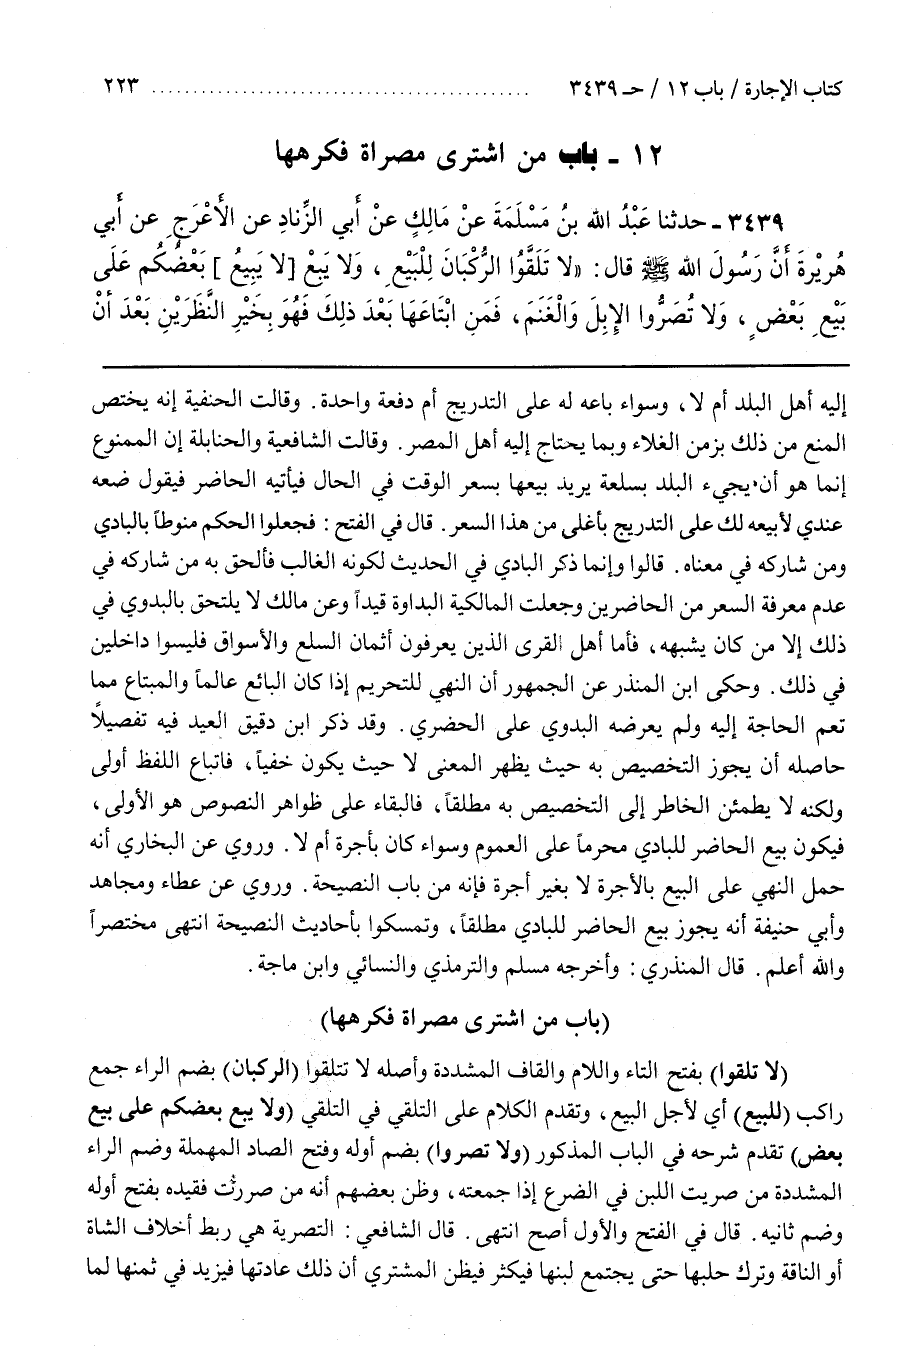 كتاب الإجارة / باب ١٢ / حـ ٣٤٣٩ ........................................... ٢٢٣
١٢ ـ باب من اشترى مصراة فكرهها
٣٤٣٩ ـ حدثنا عَبْدُ الله بنُ مَسْلَمَةَ عنْ مَالِكٍ عنْ أَبي الزِّنادِ عن الأَعْرَجِ عن أَبي
هُرَيْرةَ أَنَّ رَسُولَ الله ﷺ قال: «لا تَلَقَّوُا الرُّكْبَانَ لِلْبَيْعِ، وَلا يَبِعْ [لا يَبِيعُ] بَعْضُكُم عَلَى
بَيْعِ بَعْضٍ، وَلا تُصَرُّوا الإبِلَ وَالْغَنَمَ، فَمَنِ ابْتَاعَهَا بَعْدَ ذلِكَ فَهُوَ بِخَيْرِ النَّظَرَيْنِ بَعْدَ أنْ
إليه أهل البلد أم لا، وسواء باعه له على التدريج أم دفعة واحدة. وقالت الحنفية إنه يختص
المنع من ذلك بزمن الغلاء وبما يحتاج إليه أهل المصر. وقالت الشافعية والحنابلة إن الممنوع
إنما هو أن يجيء البلد بسلعة يريد بيعها بسعر الوقت في الحال فيأتيه الحاضر فيقول ضعه
عندي لأبيعه لك على التدريج بأغلى من هذا السعر. قال في الفتح: فجعلوا الحكم منوطاً بالبادي
ومن شاركه في معناه. قالوا وإنما ذكر البادي في الحديث لكونه الغالب فألحق به من شاركه في
عدم معرفة السعر من الحاضرين وجعلت المالكية البداوة قيداً وعن مالك لا يلتحق بالبدوي في
ذلك إلا من كان يشبهه، فأما أهل القرى الذين يعرفون أثمان السلع والأسواق فليسوا داخلين
في ذلك. وحكى ابن المنذر عن الجمهور أن النهي للتحريم إذا كان البائع عالماً والمبتاع مما
تعم الحاجة إليه ولم يعرضه البدوي على الحضري. وقد ذكر ابن دقيق العيد فيه تفصيلاً
حاصله أن يجوز التخصيص به حيث يظهر المعنى لا حيث يكون خفياً، فاتباع اللفظ أولى
ولكنه لا يطمئن الخاطر إلى التخصيص به مطلقاً، فالبقاء على ظواهر النصوص هو الأولى،
فيكون بيع الحاضر للبادي محرماً على العموم وسواء كان بأجرة أم لا. وروي عن البخاري أنه
حمل النهي على البيع بالأجرة لا بغير أجرة فإنه من باب النصيحة. وروي عن عطاء ومجاهد
وأبي حنيفة أنه يجوز بيع الحاضر للبادي مطلقاً، وتمسكوا بأحاديث النصيحة انتهى مختصراً
والله أعلم. قال المنذري: وأخرجه مسلم والترمذي والنسائي وابن ماجة.
(باب من اشترى مصراة فكرهها)
(لا تلقوا) بفتح التاء واللام والقاف المشددة وأصله لا تتلقوا (الركبان) بضم الراء جمع
راكب (للبيع) أي لأجل البيع، وتقدم الكلام على التلقي في التلقي (ولا يبع بعضكم على بيع
بعض) تقدم شرحه في الباب المذكور (ولا تصروا) بضم أوله وفتح الصاد المهملة وضم الراء
المشددة من صريت اللبن في الضرع إذا جمعته، وظن بعضهم أنه من صررت فقيده بفتح أوله
وضم ثانيه. قال في الفتح والأول أصح انتهى. قال الشافعي: التصرية هي ربط أخلاف الشاة
أو الناقة وترك حلبها حتى يجتمع لبنها فيكثر فيظن المشتري أن ذلك عادتها فيزيد في ثمنها لما